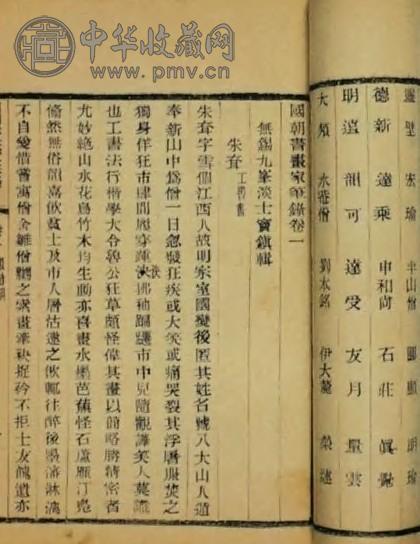 中华收藏网
www.pmv.cn
靈壁 宏瑜 半山僧 明瑜
德新 達乘 申和尚 石莊
明遠 韻可 達受 友月 量雲
大須 劉本銘 伊大麓
國朝書畫家筆錄卷一
無錫九峯淡士竇鎮輯
朱耷
朱耷字雪個江西人故明宗室國變後匿其姓名號八大山人遁
奉新山中爲僧一日忽發狂疾或大笑或痛哭裂其浮屠服焚之
獨身佯狂市肆間履穿踵決拂袖蹁躚市中兒隨觀譁笑人莫識
也工書法行楷學大令魯公狂草頗怪偉其畫以簡略勝精密者
尤妙絕山水花鳥竹木均生動亦喜畫水墨芭蕉怪石蘆雁汀鳧
翛然無俗韻喜飲貧士及市人屠沽邀之飲輒往醉後墨瀋淋漓
不自愛惜嘗寓僧舍雛僧嬲之索畫牽袂捉衿不拒士友餽遺亦